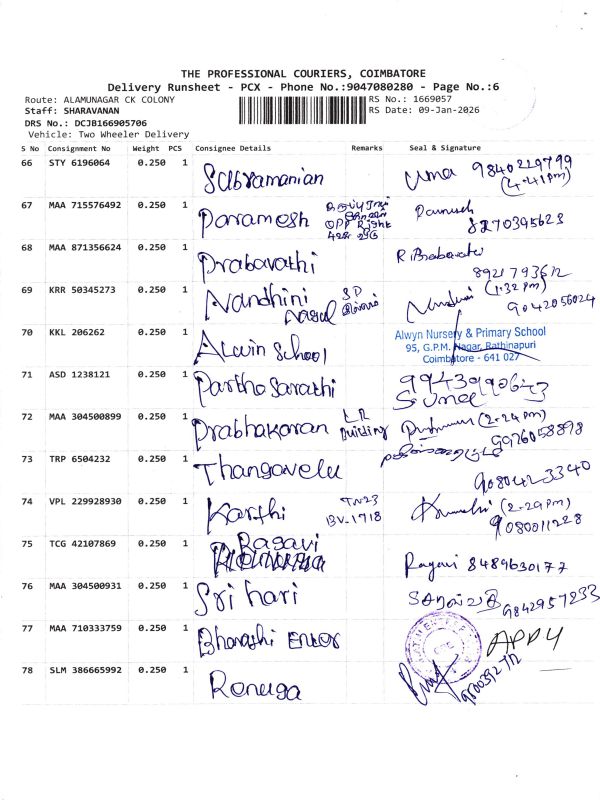 THE PROFESSIONAL COURIERS, COIMBATORE
Delivery Runsheet - PCX - Phone No.:9047080280 - Page No.:6
Route: ALAMUNAGAR CK COLONY
RS No.: 1669057
Staff: SHARAVANAN
RS Date: 09-Jan-2026
DRS No.: DCJB166905706
Vehicle: Two Wheeler Delivery
S No Consignment No Weight PCS Consignee Details Remarks Seal & Signature
66 STY 6196064 0.250 1 Subramanian Uma 9840229799
(4.41pm)
67 MAA 715576492 0.250 1 Paramesh
OPP Right
8270395623
68 MAA 871356624 0.250 1 Prabavathi R. Prabavathi
8921793612
69 KRR 50345273 0.250 1 Nandhini (1:32 pm)
9042056024
70 KKL 206262 0.250 1 Alwin School
Alwyn Nursery & Primary School
95, G.P.M. Nagar, Rathinapuri
Coimbatore - 641 027
71 ASD 1238121 0.250 1 Parthasarathi 9943990643
Suma
72 MAA 304500899 0.250 1 Prabhakaran LR Building (2.24 pm)
9926058898
73 TRP 6504232 0.250 1 Thangavelu
9080423340
74 VPL 229928930 0.250 1 Karthi TN23
BV-1718
(2.29pm)
9080011228
75 TCG 42107869 0.250 1 Ragavi Ragavi 8489630177
76 MAA 304500931 0.250 1 Sri hari
9842957233
77 MAA 710333759 0.250 1 Bharathi Enter APPU
78 SLM 386665992 0.250 1 Renuga